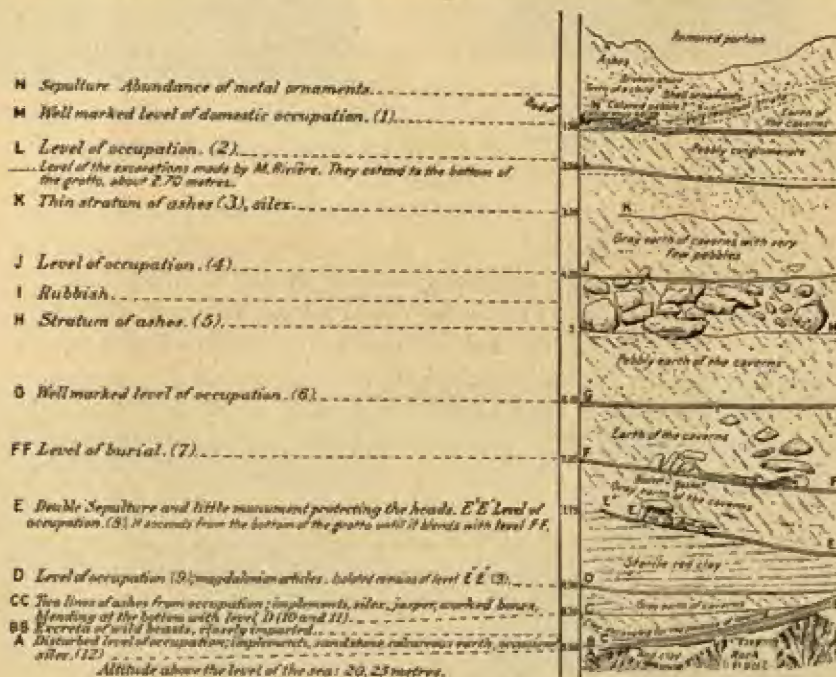 N Sepulture Abundance of metal ornaments.
M Well marked level of domestic occupation. (1)
L Level of occupation. (2)
Level of the excavations made by M. Rivière. They extend to the bottom of
the grotto, about 2.70 metres.
K Thin stratum of ashes (3), silex.
J Level of occupation. (4)
I Rubbish.
H Stratum of ashes. (5)
G Well marked level of occupation. (6)
FF Level of burial. (7)
E Double Sepulture and little monument protecting the heads. E'E' Level of
occupation. (8). It ascends from the bottom of the grotto until it blends with level FF.
D Level of occupation (9); magdalenian articles. Isolated remains of level E'E'
CC Two lines of ashes from occupation; implements, silex, jasper, worked bones,
blending at the bottom with level D (10 and 11).
BB Excreta of wild beasts, closely impacted.
A Disturbed level of occupation; implements, sandstone calcareous earth,
silex. (12)
Altitude above the level of the sea: 20,25 metres.
Removed portion
Ashes
Earth of
the caverns
Pebbly conglomerate
K
Gray earth of caverns with very
few pebbles
J
H
Pebbly earth of the caverns
G
Earth of the caverns
F
F
Gray earth of the caverns
E
E
Sterile red clay
D
C
Gray earth of caverns
Red clay
Rock